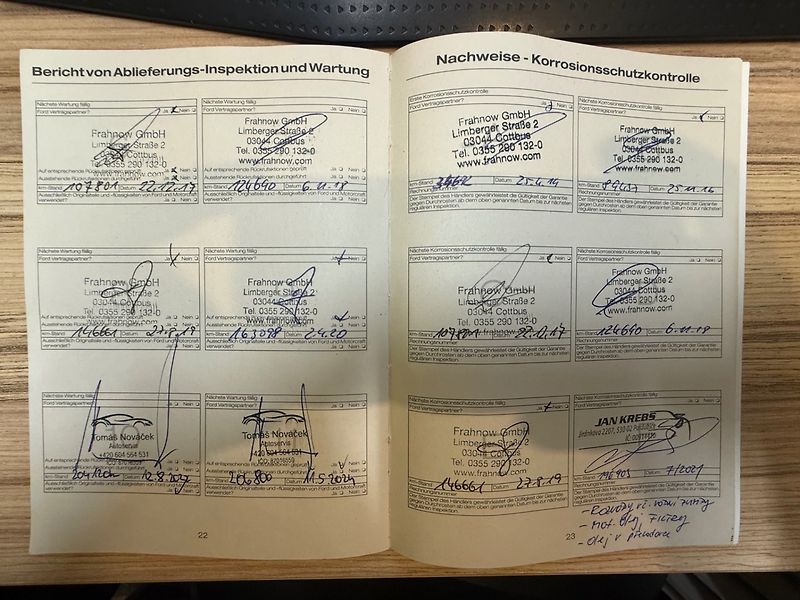 Bericht von Ablieferungs-Inspektion und Wartung
Nächste Wartung fällig
Ford Vertragspartner? Ja Nein
Frahnow GmbH
Limberger Straße 2
03044 Cottbus
Tel. 0355 290 132-0
www.frahnow.com
Auf entsprechende Rückrufaktionen geprüft Ja Nein
Ausstehende Rückrufaktionen durchgeführt Ja Nein
km-Stand 107801 Datum 22.12.17
Ausschließlich Originalteile und -flüssigkeiten von Ford und Motorcraft verwendet? Ja Nein
Nächste Wartung fällig
Ford Vertragspartner? Ja Nein
Frahnow GmbH
Limberger Straße 2
03044 Cottbus
Tel. 0355 290 132-0
www.frahnow.com
km-Stand 124690 Datum 6.11.18
Ausschließlich Originalteile und -flüssigkeiten von Ford und Motorcraft verwendet? Ja Nein
Nächste Wartung fällig
Ford Vertragspartner? Ja Nein
Frahnow GmbH
Limberger Straße 2
03044 Cottbus
Tel. 0355 290 132-0
www.frahnow.com
km-Stand 146661 Datum 27.8.19
Ausschließlich Originalteile und -flüssigkeiten von Ford und Motorcraft verwendet? Ja Nein
Nächste Wartung fällig
Ford Vertragspartner? Ja Nein
Frahnow GmbH
Limberger Straße 2
03044 Cottbus
Tel. 0355 290 132-0
www.frahnow.com
km-Stand 163098 Datum
Ausschließlich Originalteile und -flüssigkeiten von Ford und Motorcraft verwendet? Ja Nein
Nächste Wartung fällig
Ford Vertragspartner? Ja Nein
Tomáš Nováček
Autoservis
+420 604 564 531
km-Stand Datum
Ausschließlich Originalteile und -flüssigkeiten von Ford und Motorcraft verwendet? Ja Nein
Nächste Wartung fällig
Ford Vertragspartner? Ja Nein
Tomáš Nováček
Autoservis
+420 604 564 531
km-Stand 206800 Datum 11.5.2024
Ausschließlich Originalteile und -flüssigkeiten von Ford und Motorcraft verwendet? Ja Nein
22
Nachweise - Korrosionsschutzkontrolle
Erste Korrosionsschutzkontrolle
Ford Vertragspartner? Ja Nein
Frahnow GmbH
Limberger Straße 2
03044 Cottbus
Tel. 0355 290 132-0
www.frahnow.com
km-Stand Datum 25.4.14
Rechnungsnummer
Der Stempel des Händlers gewährleistet die Gültigkeit der Garantie
gegen Durchrosten ab dem oben genannten Datum bis zur nächsten
regulären Inspektion.
Nächste Korrosionsschutzkontrolle fällig
Ford Vertragspartner? Ja Nein
Frahnow GmbH
Limberger Straße 2
03044 Cottbus
Tel. 0355 290 132-0
www.frahnow.com
km-Stand Datum 25.11.14
Rechnungsnummer
Der Stempel des Händlers gewährleistet die Gültigkeit der Garantie
gegen Durchrosten ab dem oben genannten Datum bis zur nächsten
regulären Inspektion.
Nächste Korrosionsschutzkontrolle fällig
Ford Vertragspartner? Ja Nein
Frahnow GmbH
Limberger Straße 2
03044 Cottbus
Tel. 0355 290 132-0
www.frahnow.com
km-Stand 107801 Datum
Rechnungsnummer
Der Stempel des Händlers gewährleistet die Gültigkeit der Garantie
gegen Durchrosten ab dem oben genannten Datum bis zur nächsten
regulären Inspektion.
Nächste Korrosionsschutzkontrolle fällig
Ford Vertragspartner? Ja Nein
Frahnow GmbH
Limberger Straße 2
03044 Cottbus
Tel. 0355 290 132-0
www.frahnow.com
km-Stand 124690 Datum 6.11.18
Rechnungsnummer
Der Stempel des Händlers gewährleistet die Gültigkeit der Garantie
gegen Durchrosten ab dem oben genannten Datum bis zur nächsten
regulären Inspektion.
Nächste Korrosionsschutzkontrolle fällig
Ford Vertragspartner? Ja Nein
Frahnow GmbH
Limberger Straße 2
03044 Cottbus
Tel. 0355 290 132-0
www.frahnow.com
km-Stand 146661 Datum 27.8.19
Rechnungsnummer
Der Stempel des Händlers gewährleistet die Gültigkeit der Garantie
gegen Durchrosten ab dem oben genannten Datum bis zur nächsten
regulären Inspektion.
Nächste Korrosionsschutzkontrolle fällig
Ford Vertragspartner? Ja Nein
JAN KREBS
km-Stand Datum 7/2021
Rechnungsnummer
Der Stempel des Händlers gewährleistet die Gültigkeit der Garantie
gegen Durchrosten ab dem oben genannten Datum bis zur nächsten
regulären Inspektion.
- Rozvody vč. vodní pumpy
- Mot. Olej, Filtry
- Olej v převodovce
23